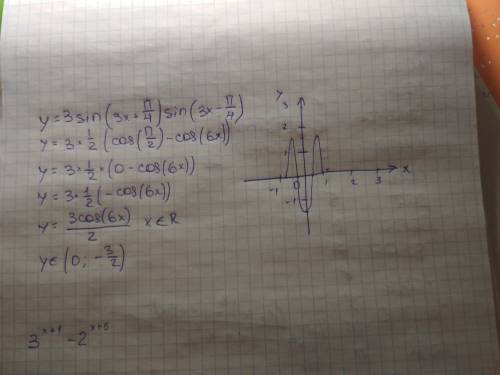 y = 3sin(3x+π/4)sin(3x-π/4)
y = 3*1/2(cos(π/2)-cos(6x))
y = 3*1/2*(0-cos(6x))
y = 3*1/2(-cos(6x))
y = 3cos(6x)/2 x∈R
y∈(0; -3/2)
3^(x+1) -2^(x+6)
y
3
2
1
-1 0 1 2 3 x
-1